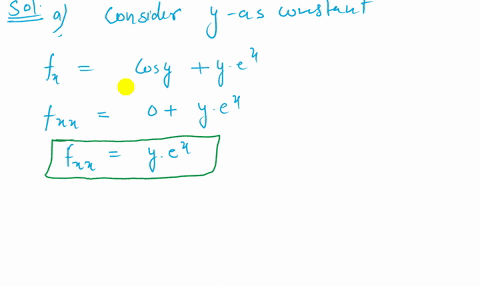 Sol: a) Consider y-as constant
fₓ = cosy + y·eˣ
fₓₓ = 0 + y·eˣ
fₓₓ = y·eˣ